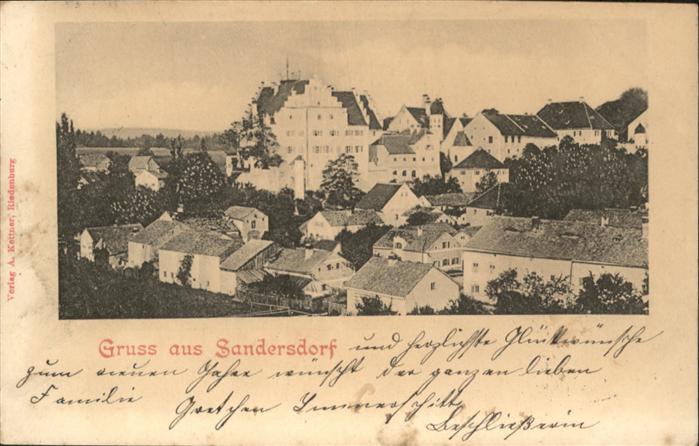 Verlag A. Kettner, Riedenburg
Gruss aus Sandersdorf und herzlichste Glückwünsche
zum neuen Jahre wünscht der ganzen lieben
Familie Gretchen
Beschließerin